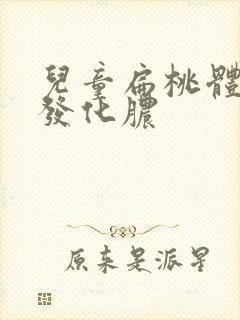 兒童扁桃體
發化膿
原来是派星